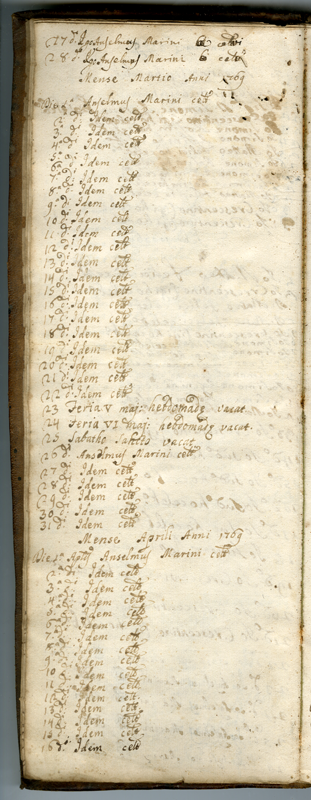 27 d.º Ego Anselmus Marini celeb.i
28 d.º Ego Anselmus Marini celeb.i
Mense Martio Anni 1769
Die p.ª Anselmus Marini celt.
2 d.º Idem celt.
3 d.º Idem celt.
4 d.º Idem celt.
5 d.º Idem celt.
6 d.º Idem celt.
7 d.º Idem celt.
8 d.º Idem celt.
9 d.º Idem celt.
10 d.º Idem celt.
11 d.º Idem celt.
12 d.º Idem celt.
13 d.º Idem celt.
14 d.º Idem celt.
15 d.º Idem celt.
16 d.º Idem celt.
17 d.º Idem celt.
18 d.º Idem celt.
19 d.º Idem celt.
20 d.º Idem celt.
21 d.º Idem celt.
22 d.º Idem celt.
23 Feria V maj: hebdomadę vacat
24 Feria VI maj: hebdomadę vacat.
25 Sabatho Sancto vacat
26 d.º Anselmus Marini celt.
27 d.º Idem celt.
28 d.º Idem celt.
29 d.º Idem celt.
30 d.º Idem celt.
31 d.º Idem celt.
Mense Aprili Anni 1769
Die p.ª Aplis Anselmus Marini celt.
2 d.º Idem celt.
3 d.º Idem celt.
4 d.º Idem celt.
5 d.º Idem celt.
6 d.º Idem celt.
7 d.º Idem celt.
8 d.º Idem celt.
9 d.º Idem celt.
10 d.º Idem celt.
11 d.º Idem celt.
12 d.º Idem celt.
13 d.º Idem celt.
14 d.º Idem celt.
15 d.º Idem celt.
16 d.º Idem celt.